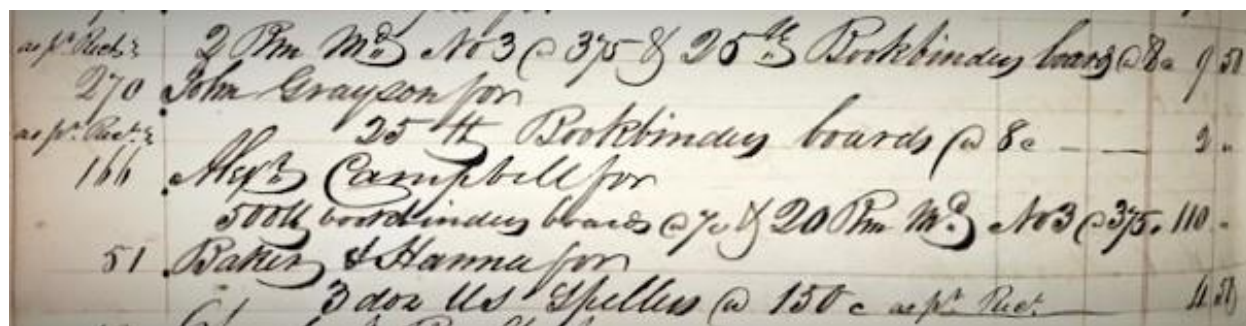 as pr Rect. 2 Rm Md No 3 @ 375 & 25 lb Bookbinders boards @ 8c 9 50
270 John Grayson for
as pr. Rect. 25 lb Bookbinders boards @ 8c — — 2 "
166 Alexr Campbell for
500 lb boordbinders boards @ 7c & 20 Rm Md No 3 @ 375. 110 "
51 Baker & Hanna for
3 doz U.S. Spellers @ 150 c as pr Rect. 4 50